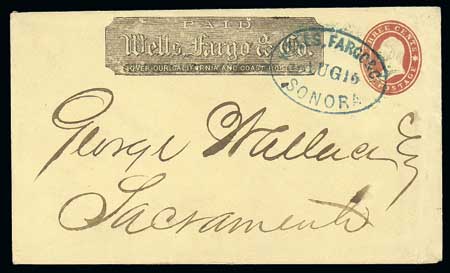 PAID
Wells, Fargo & Co.
OVER OUR CALIFORNIA AND COAST ROUTES
WELLS, FARGO & CO
AUG 15
SONORA
THREE CENTS
POSTAGE
George Wallace Esq
Sacramento